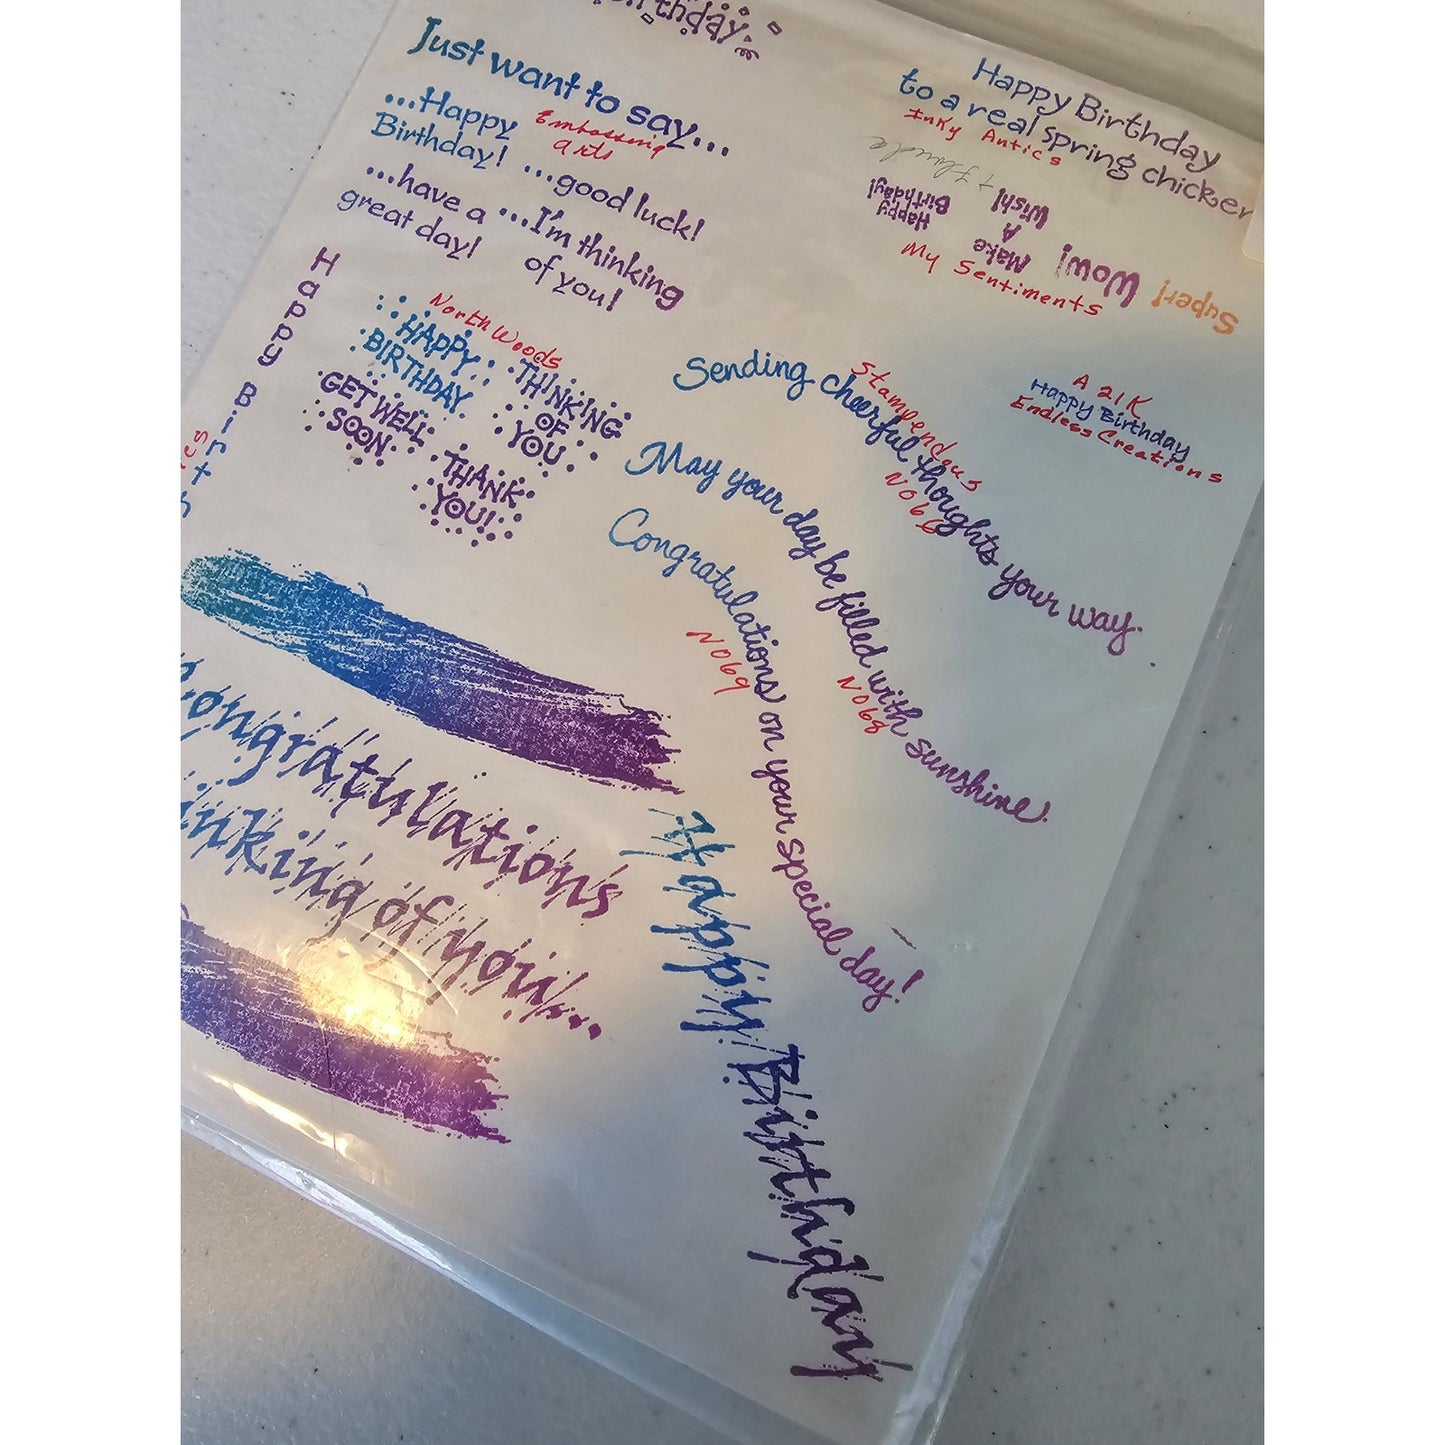 Just want to say...
...Happy
Birthday!
Embossing
arts
...good luck!
...have a
great day!
...I'm thinking
of you!
Happy Birthday
to a real spring chicken
Inky Antics
Happy
Birthday!
Make
A
Wish!
Wow!
Super!
My Sentiments
Happy Birt
North Woods
HAPPY
BIRTHDAY
THINKING
OF
YOU
GET WELL
SOON
THANK
YOU!
Sending cheerful thoughts your way.
Stampendous
N066
A 21K
Happy Birthday
Endless Creations
May your day be filled with sunshine.
N068
Congratulations on your special day!
N069
Congratulations
inking of you...
Happy Birthday